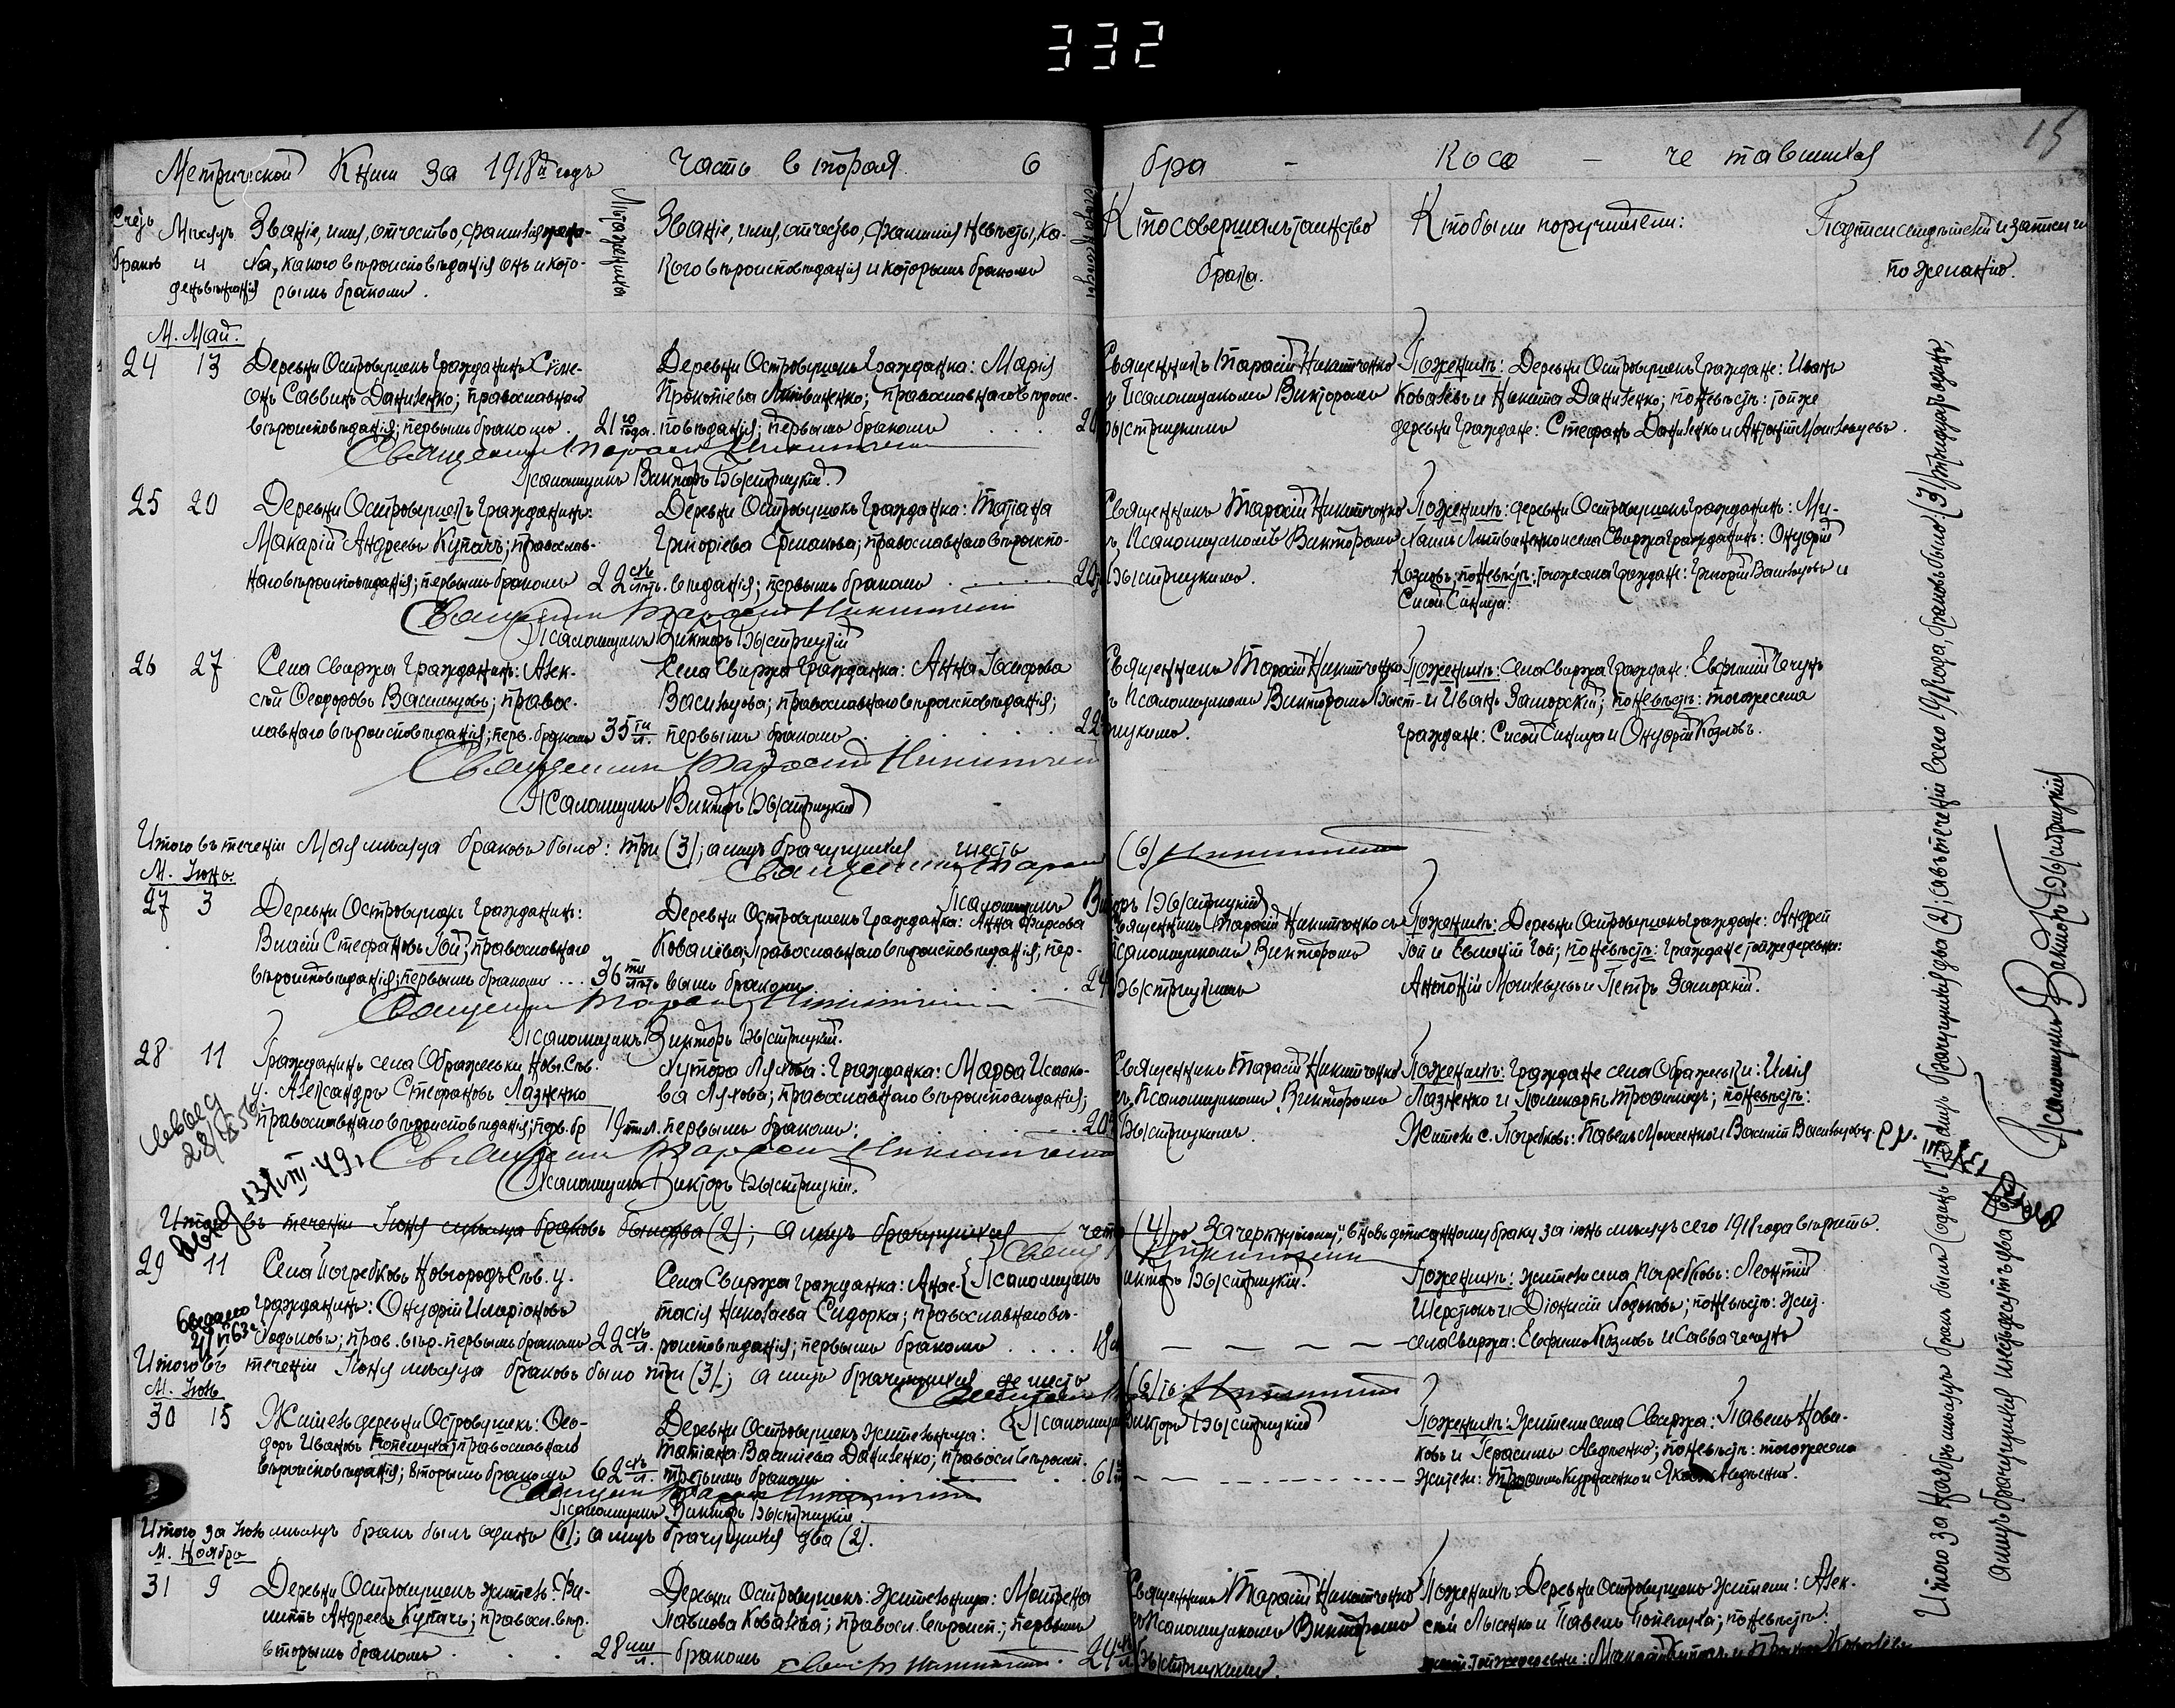 332
15
Метрической Книги за 1918й годъ Часть вторая 6 бра - косо - четавшихся
Счетъ браковъ
Мѣсяцъ и день вѣнчанія
Званіе, имя, отчество, фамилія жениха, какого вѣроисповѣданія онъ и которымъ бракомъ.
Лѣта жениха
Званіе, имя, отчество, фамилія невѣсты, какого вѣроисповѣданія и которымъ бракомъ
Лѣта невѣсты
Кто совершалъ таинство брака.
Кто были поручители:
Подписи свидѣтелей и записи по желанію.
М. Май.
24 13 Деревни Островушекъ Гражданинъ Симе-
онъ Саввинъ Даниленко; православнаго
вѣроисповѣданія; первымъ бракомъ. 21го года.
Деревни Островушекъ Гражданка: Марія
Прокопіева Литвиненко; православнаго вѣроис-
повѣданія; первымъ бракомъ
Священникъ Тарасій Никитченко
Псаломщикомъ Викторомъ
Быстрицкимъ
По женихѣ: Деревни Островушекъ Граждане: Иванъ
Ковалёвъ и Никита Даниленко; по невѣстѣ: той же
деревни Граждане: Стефанъ Даниленко и
Священникъ Тарасій Никитченко
Псаломщикъ Викторъ Быстрицкій.
25 20 Деревни Островушекъ Гражданинъ:
Макарій Андреевъ Купачъ; православ-
наго вѣроисповѣданія; первымъ бракомъ 22
Деревни Островушекъ Гражданка: Татіана
Григоріева Ермакова; православнаго вѣроиспо-
вѣданія; первымъ бракомъ
Священникъ Тарасій Никитченко
Псаломщикомъ Викторомъ
Быстрицкимъ.
По женихѣ: деревни Островушекъ гражданинъ: Ми-
хаилъ Литвиненко и села Свиржа гражданинъ: Онуфрій
Козловъ; по невѣстѣ: того же села Граждане: Григорій Васильцовъ и
Сисой Синица:
Священникъ Тарасій Никитченко
Псаломщикъ Викторъ Быстрицкій
26 27 Села Свиржа Гражданинъ: Алек-
сѣй Ѳеодоровъ Васильцовъ; правос-
лавнаго вѣроисповѣданія; перв. бракомъ 35ти л.
Села Свиржа Гражданка: Анна
Васильцова; православнаго вѣроисповѣданія;
первымъ бракомъ 22
Священникъ Тарасій Никитченко
Псаломщикомъ Викторомъ Быст-
рицкимъ.
По женихѣ: села Свиржа Граждане: Евфимій Чечунъ
и Иванъ Заморскій; по невѣстѣ: того же села
Граждане: Сисой Синица и Онуфрій Козловъ.
Священникъ Тарасій Никитченко
Псаломщикъ Викторъ Быстрицкій
Итого въ теченіи Мая мѣсяца браковъ было: три (3); а лицъ брачущихся шесть (6)
Священникъ Тарасій Никитченко
Псаломщикъ Викторъ Быстрицкій
М. Іюнь.
27 3 Деревни Островушекъ Гражданинъ:
Власій Стефановъ Гой; православнаго
вѣроисповѣданія; первымъ бракомъ ... 36ти лѣтъ
Деревни Островушекъ Гражданка: Анна Фирсова
Ковалёва; православнаго вѣроисповѣданія, пер-
вымъ бракомъ 24
Священникъ Тарасій Никитченко съ
Псаломщикомъ Викторомъ
Быстрицкимъ
По женихѣ: Деревни Островушекъ Граждане: Андрей
Гой и Евменій Гой; по невѣстѣ: Граждане той же деревни:
Антоній и Петръ Заморскій.
Священникъ Тарасій Никитченко
Псаломщикъ Викторъ Быстрицкій.
28 11 Гражданинъ села Ображеевки Новг. Сѣв.
у. Александръ Стефановъ Лазненко
православнаго вѣроисповѣданія; перв. бр 19ти л.
Хутора Ляхова: Гражданка: Марѳа Исаако-
ва Ляхова; православнаго вѣроисповѣданія;
первымъ бракомъ: 20
Священникъ Тарасій Никитченко
Псаломщикомъ Викторомъ
Быстрицкимъ.
По женихѣ: Граждане села Ображеевки: Илія
Лазненко и ; по невѣстѣ:
Жители с. Погребковъ: Павелъ и Василій Васильцовъ.
Священникъ Тарасій Никитченко
Псаломщикъ Викторъ Быстрицкій.
Итого въ теченіи Іюня мѣсяца браковъ было два (2); а лицъ брачущихся четы(4)ре Зачеркнутому, вновь дописанному браку за іюнь мѣсяцъ сего 1918 года вѣрить.
Псаломщикъ Викторъ Быстрицкій.
29 11 Села Погребковъ Новгородъ Сѣв. у.
гражданинъ: Онуфрій Иларіоновъ
Ходыковъ; прав. вѣр. первымъ бракомъ 22
Села Свиржа гражданка: Анас-
тасія Николаева Сидорка; православнаго вѣ-
роисповѣданія; первымъ бракомъ
По женихѣ: жители села Погребковъ: Леонтій
Шерстюкъ и Діонисій Ходыковъ; по невѣстѣ: жит.
села Свиржа: Евфимъ Козловъ и Савва Чечунъ
Итого въ теченіи Іюня мѣсяца браковъ было три (3); а лицъ брачущихся шесть (6)
Псаломщикъ Викторъ Быстрицкій
М. Іюль
30 15 Житель деревни Островушекъ: Ѳео-
доръ Ивановъ Попелуха; православнаго
вѣроисповѣданія; вторымъ бракомъ 62
Деревни Островушекъ жительница:
Татіана Васильева Даниленко; правосл. вѣроисп.
третьимъ бракомъ 61
По женихѣ: Жители села Свиржа: Павелъ Нови-
ковъ и Герасимъ Авдѣенко; по невѣстѣ: того же села
жители: Трофимъ и Яковъ Авдѣенко.
Псаломщикъ Викторъ Быстрицкій.
Итого за Іюль мѣсяцъ бракъ былъ одинъ (1); а лицъ брачущихся два (2).
М. Ноябрь
31 9 Деревни Островушекъ житель: Фи-
липпъ Андреевъ Купачъ; правосл. вѣр.
вторымъ бракомъ 28ми л.
Деревни Островушекъ: жительница: Матрена
Павлова Ковалёва; правосл. вѣроисп.; первымъ
бракомъ 24
Священникъ Тарасій Никитченко
Псаломщикомъ Викторомъ
Быстрицкимъ.
По женихѣ: Деревни Островушекъ жители: Алек-
сѣй Лысенко и Павелъ Попелуха; по невѣстѣ:
Итого за Ноябрь мѣсяцъ бракъ былъ (одинъ 1); лицъ брачущихся два (2); а въ теченіи всего 1918 года, браковъ было (31) тридцать одинъ,
а лицъ брачущихся шестьдесятъ два (62)
Псаломщикъ Викторъ Быстрицкій